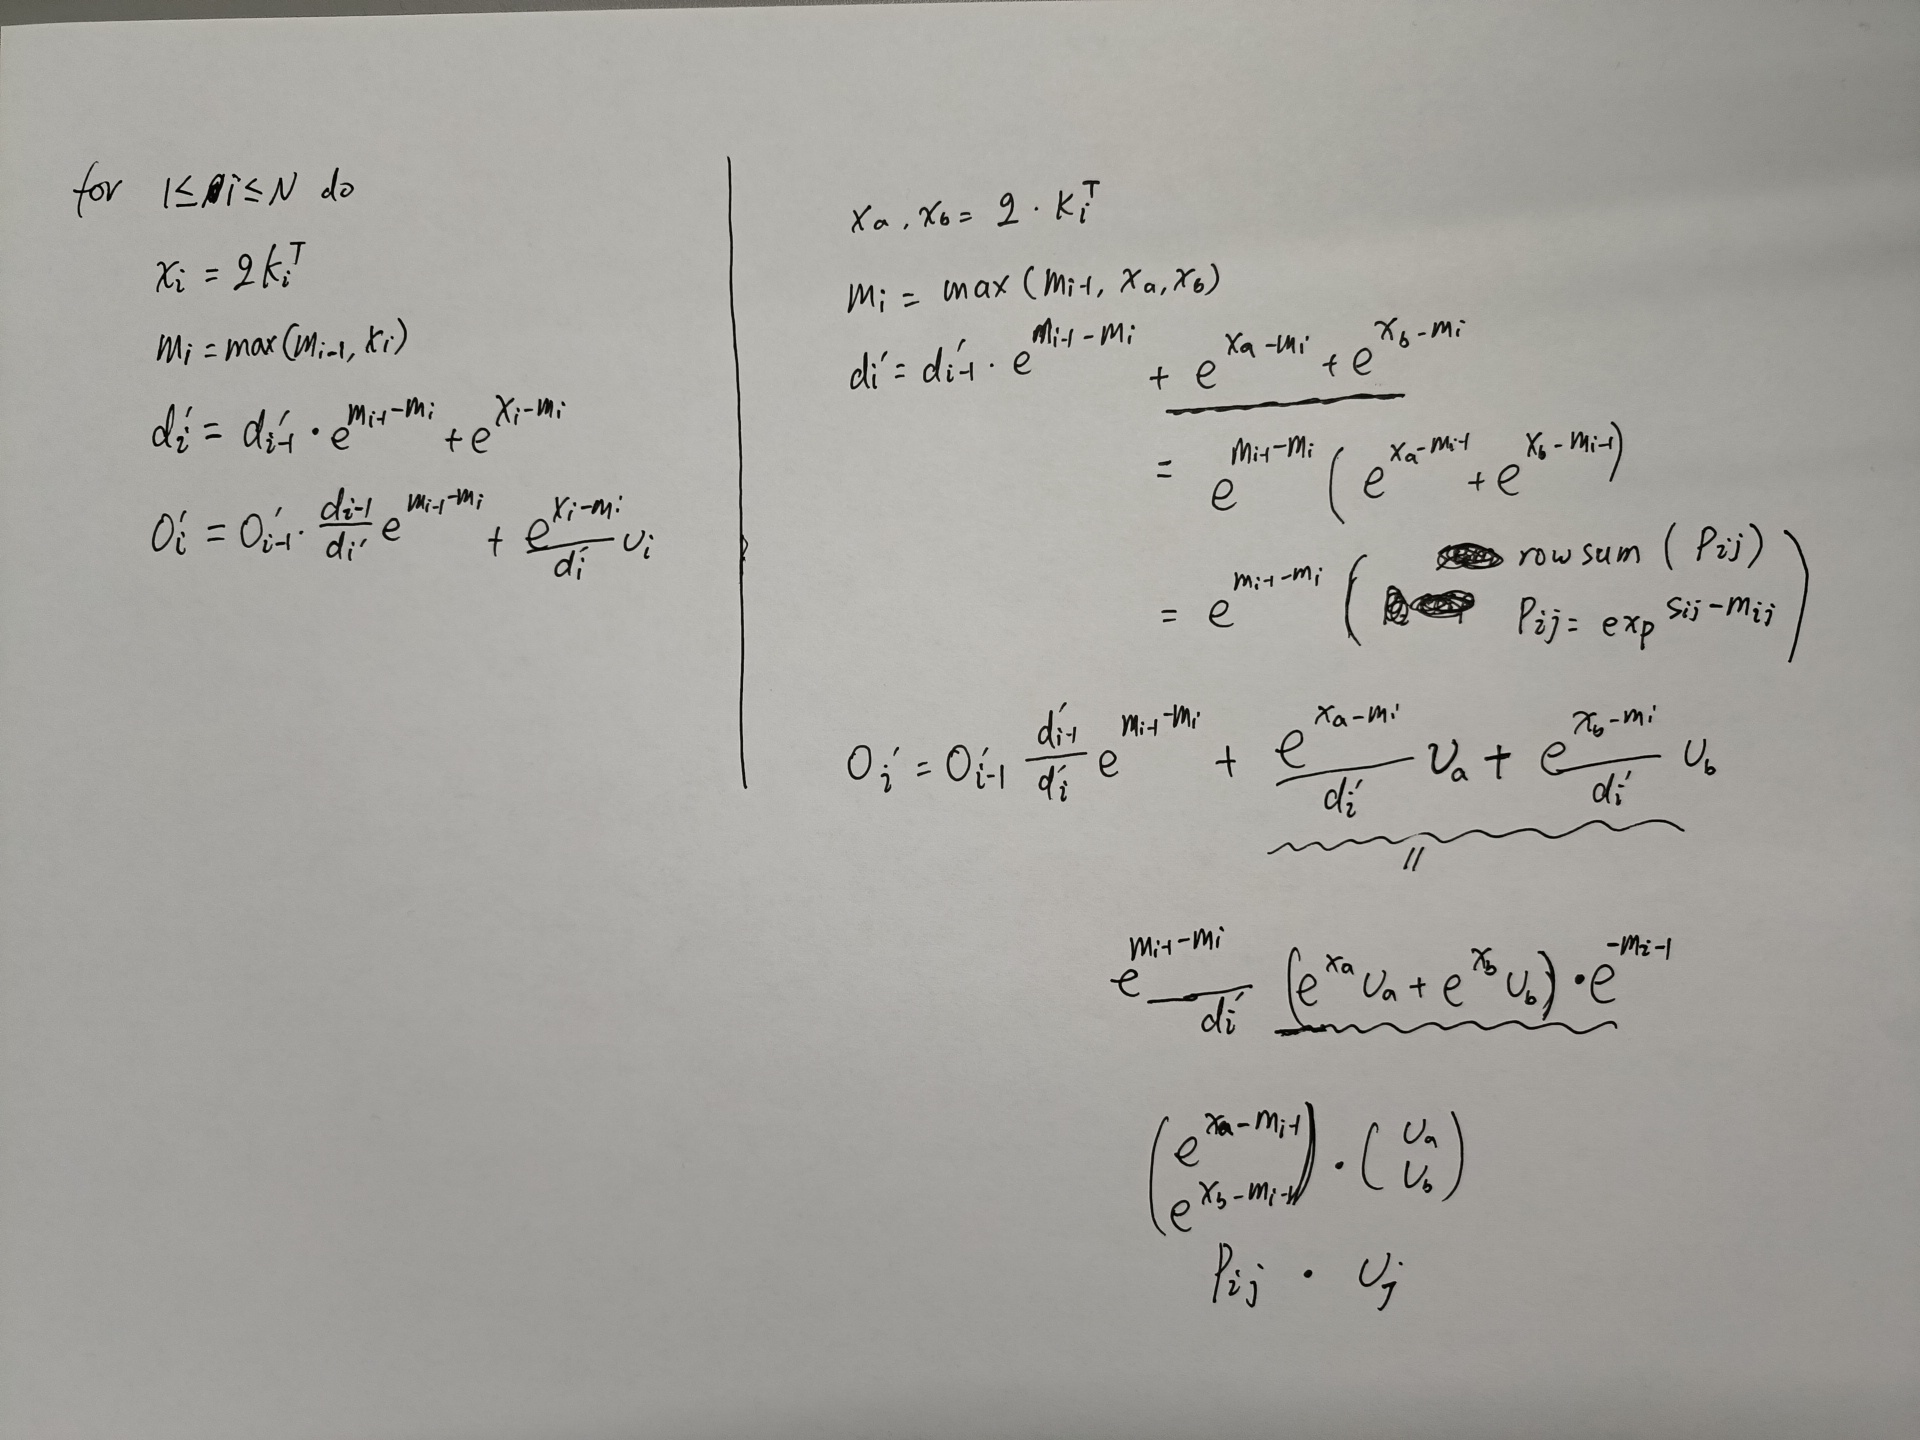 for 1≤i≤N do
xᵢ = qkᵢᵀ
mᵢ = max(mᵢ₋₁, xᵢ)
dᵢ' = dᵢ₋₁' · e^(mᵢ₋₁-mᵢ) + e^(xᵢ-mᵢ)
Oᵢ' = Oᵢ₋₁' · (dᵢ₋₁/dᵢ') e^(mᵢ₋₁-mᵢ) + (e^(xᵢ-mᵢ)/dᵢ') vᵢ
xₐ, x_b = q · kᵢᵀ
mᵢ = max (mᵢ₋₁, xₐ, x_b)
dᵢ' = dᵢ₋₁' · e^(mᵢ₋₁-mᵢ) + e^(xₐ-mᵢ) + e^(x_b-mᵢ)
= e^(mᵢ₋₁-mᵢ) (e^(xₐ-mᵢ₋₁) + e^(x_b-mᵢ₋₁))
= e^(mᵢ₋₁-mᵢ) ( rowsum (Pᵢⱼ)
Pᵢⱼ = exp^(Sᵢⱼ-mᵢⱼ) )
Oᵢ' = Oᵢ₋₁' (dᵢ₋₁'/dᵢ') e^(mᵢ₋₁-mᵢ) + (e^(xₐ-mᵢ)/dᵢ') vₐ + (e^(x_b-mᵢ)/dᵢ') v_b
=
(e^(mᵢ₋₁-mᵢ)/dᵢ') (e^(xₐ) vₐ + e^(x_b) v_b) · e^(-mᵢ₋₁)
(e^(xₐ-mᵢ₋₁)
e^(x_b-mᵢ₋₁)) · (vₐ
v_b)
Pᵢⱼ · vⱼ